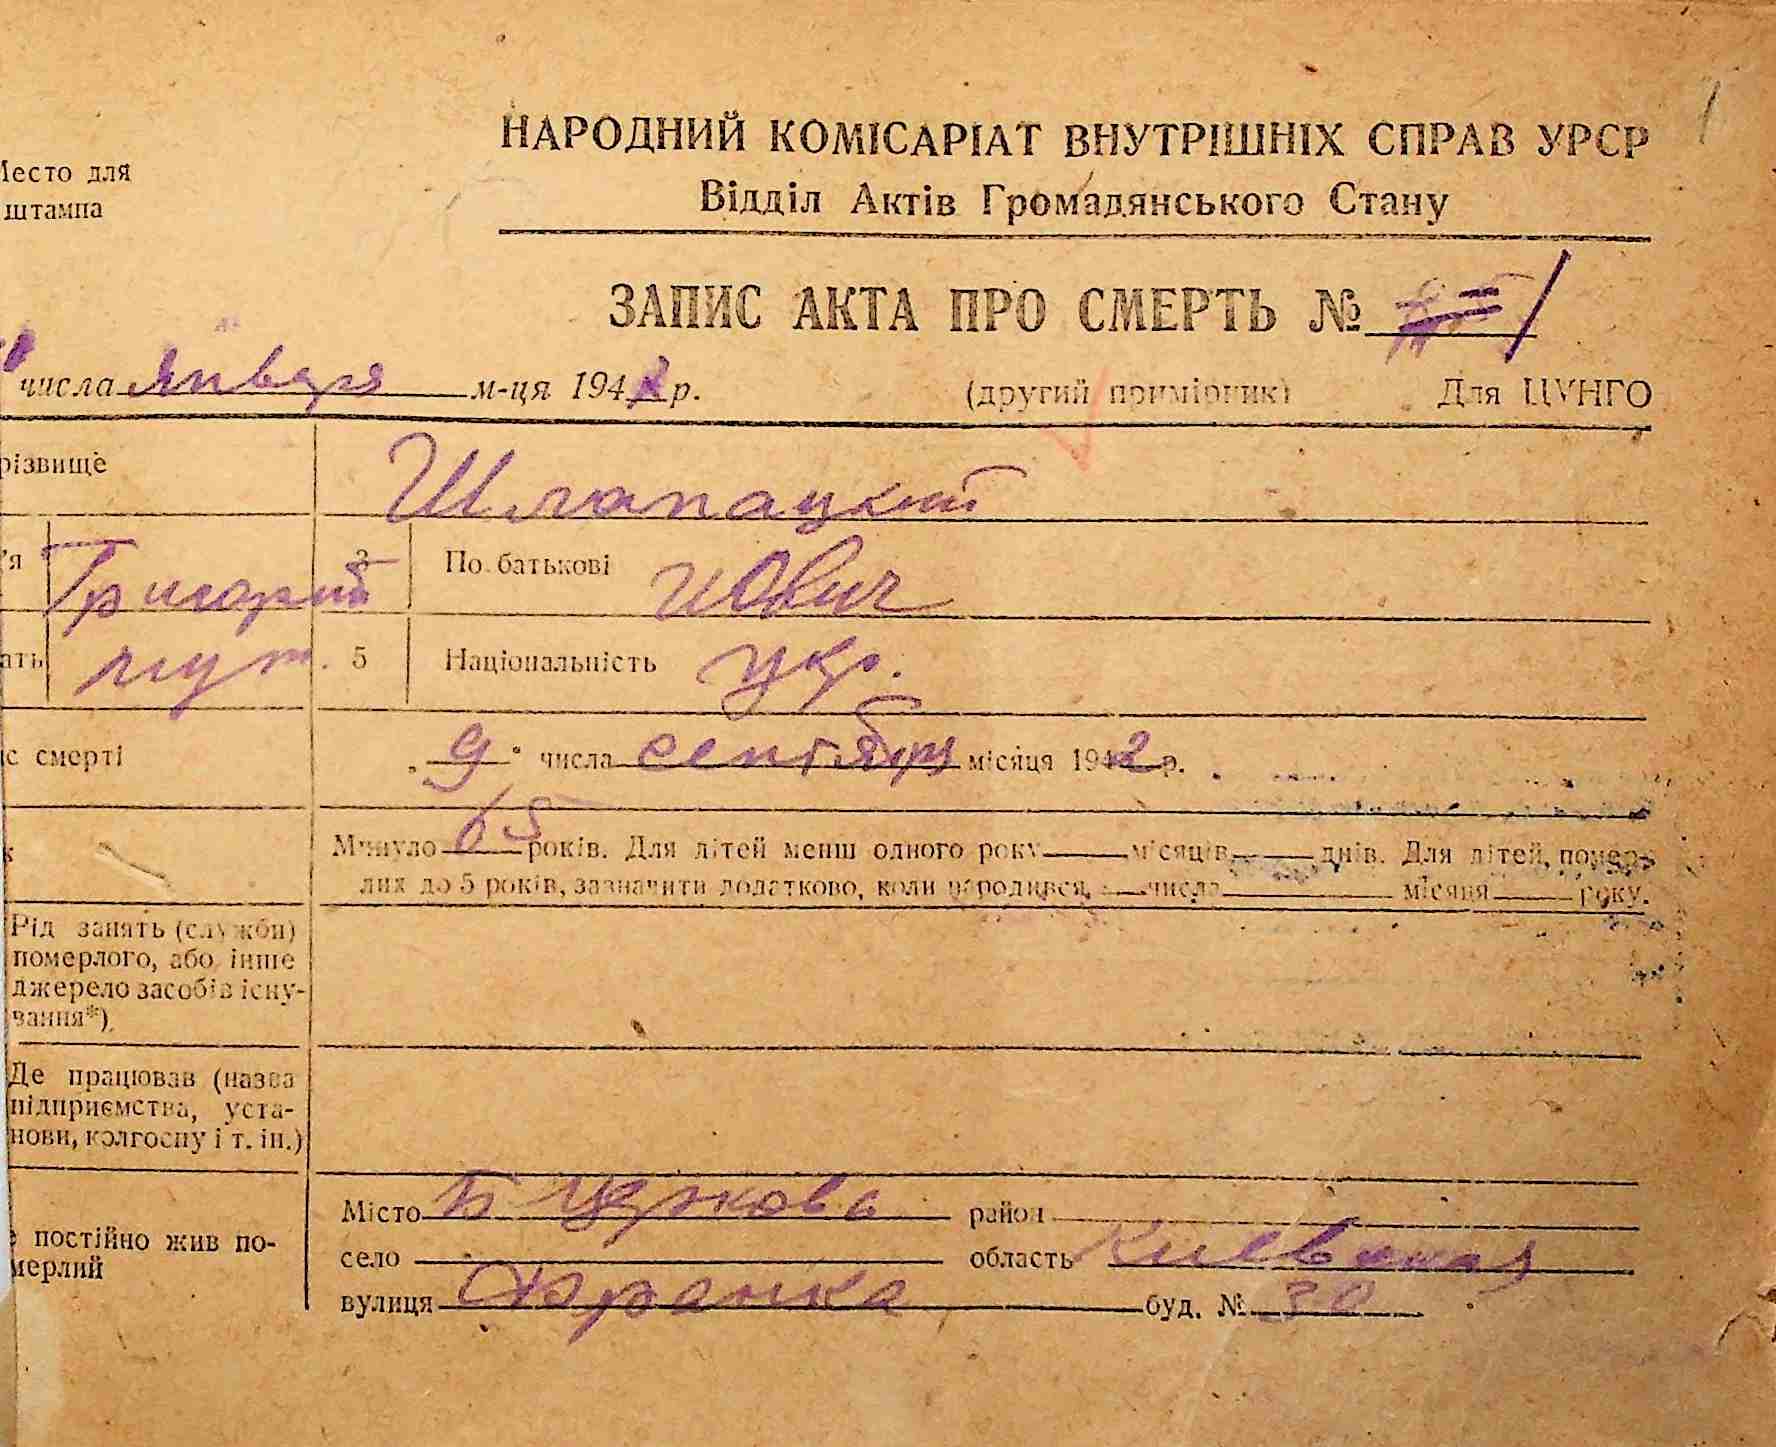 1
НАРОДНИЙ КОМІСАРІАТ ВНУТРІШНІХ СПРАВ УРСР
Место для
штампа
Відділ Актів Громадянського Стану
ЗАПИС АКТА ПРО СМЕРТЬ № 1
числа января м-ця 194 р.
(другий примірник) Для ЦУНГО
різвище Шлапацкий
'я Григорий 3 По батькові Иович
ать муж. 5 Національність укр.
с смерті „9" числа сентября місяця 1942 р.
Минуло 65 років. Для дітей менш одного року місяців днів. Для дітей, помер-
лих до 5 років, зазначити додатково, коли народився, числа місяця року.
Рід занять (служби)
померлого, або інше
джерело засобів існу-
вання*)
Де працював (назва
підприємства, уста-
нови, колгоспу і т. ін.)
е постійно жив по-
мерлий
Місто Б Церковь район
село область Киевская
вулиця Франка буд. № 30